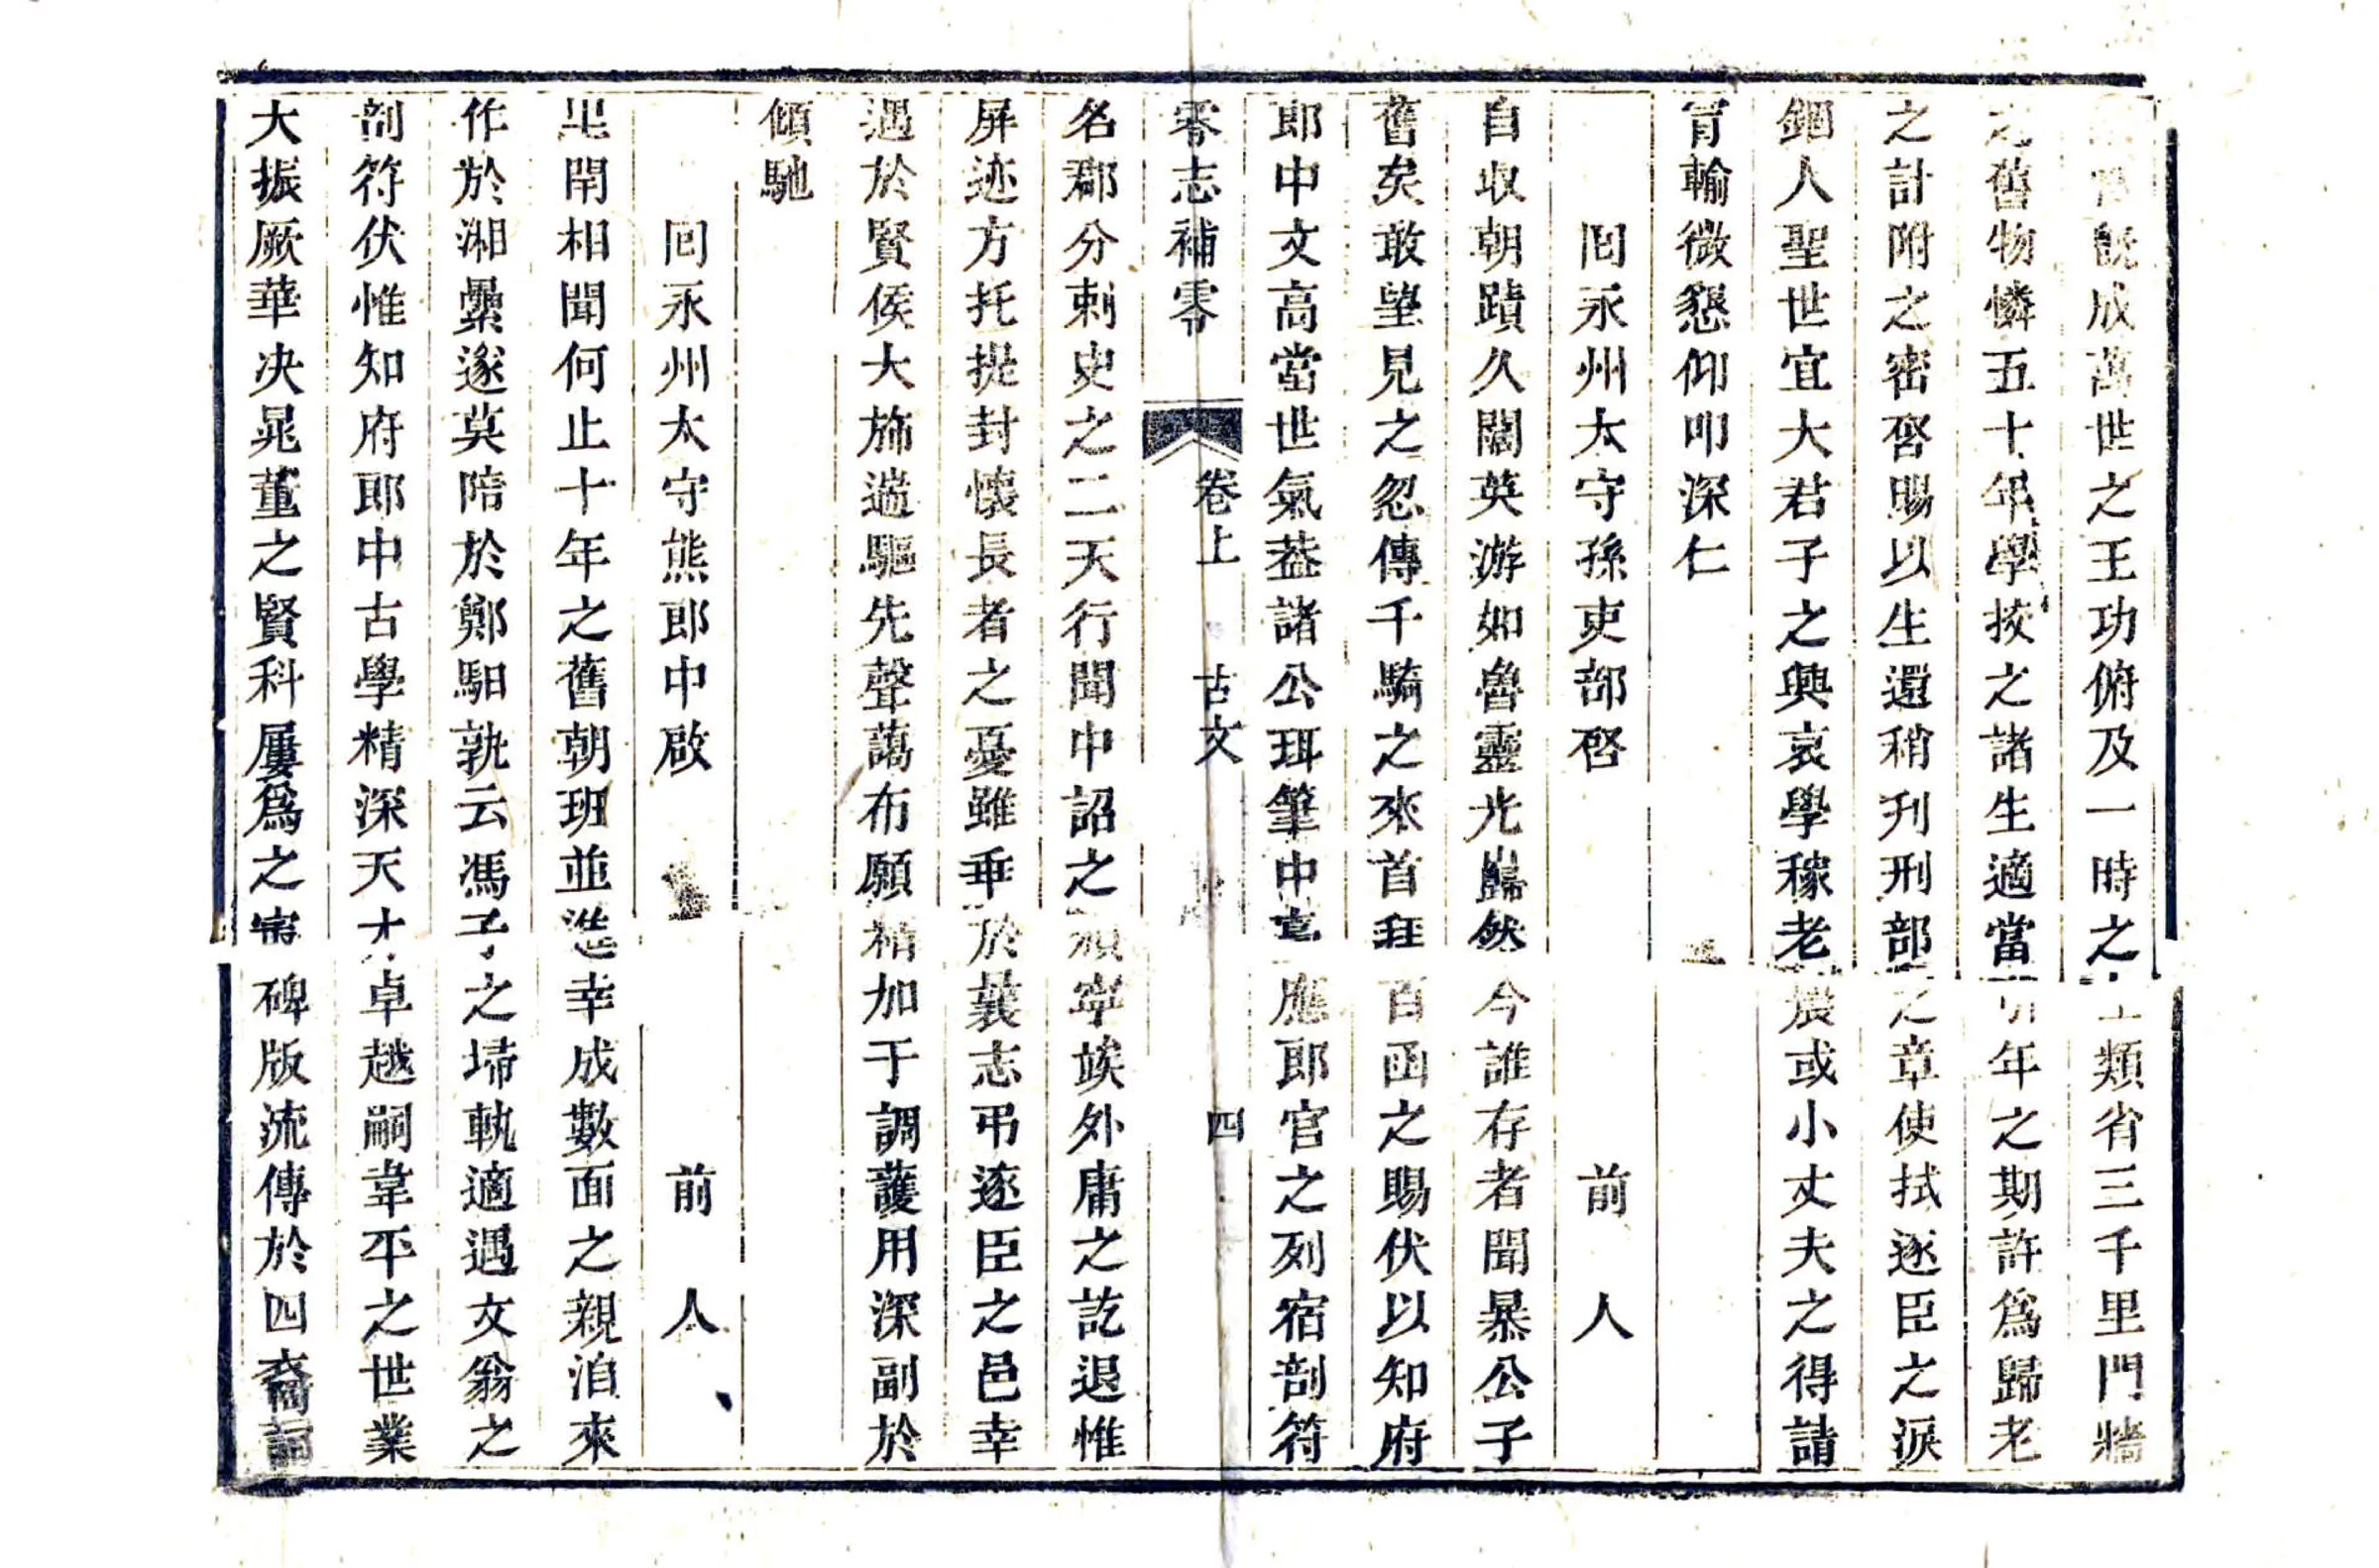 既成萬世之王功俯及一時之士類省三千里門牆
之舊物憐五十年學挍之諸生適當明年之期許爲歸老
之計附之密啓賜以生還稍刋刑部之章使拭逐臣之淚
鉏人聖世宜大君子之興哀學稼老農或小丈夫之得請
胷輸微懇仰叩深仁
囘永州太守孫吏部啓　前人
自收朝蹟久闊英游如魯靈光巋然今誰存者聞暴公子
舊矣敢望見之忽傳千騎之來首枉百函之賜伏以知府
郎中文高當世氣葢諸公珥筆中臺應郎官之列宿剖符
零志補零　卷上　古文　四
名郡分刺史之二天行聞中詔之頒寧竢外庸之訖退惟
屏迹方托提封懷長者之憂雖垂於曩志弔逐臣之邑幸
遇於賢侯大斾遄驅先聲藹布願福加于調護用深副於
傾馳
囘永州太守熊郎中啟　前人
里閈相聞何止十年之舊朝班並進幸成數面之親洎來
作於湘纍遂莫陪於鄭馹孰云馮子之埽軌適遇文翁之
剖符伏惟知府郎中古學精深天才卓越嗣韋平之世業
大振厥華决晁董之賢科屢爲之寗碑版流傳於四裔